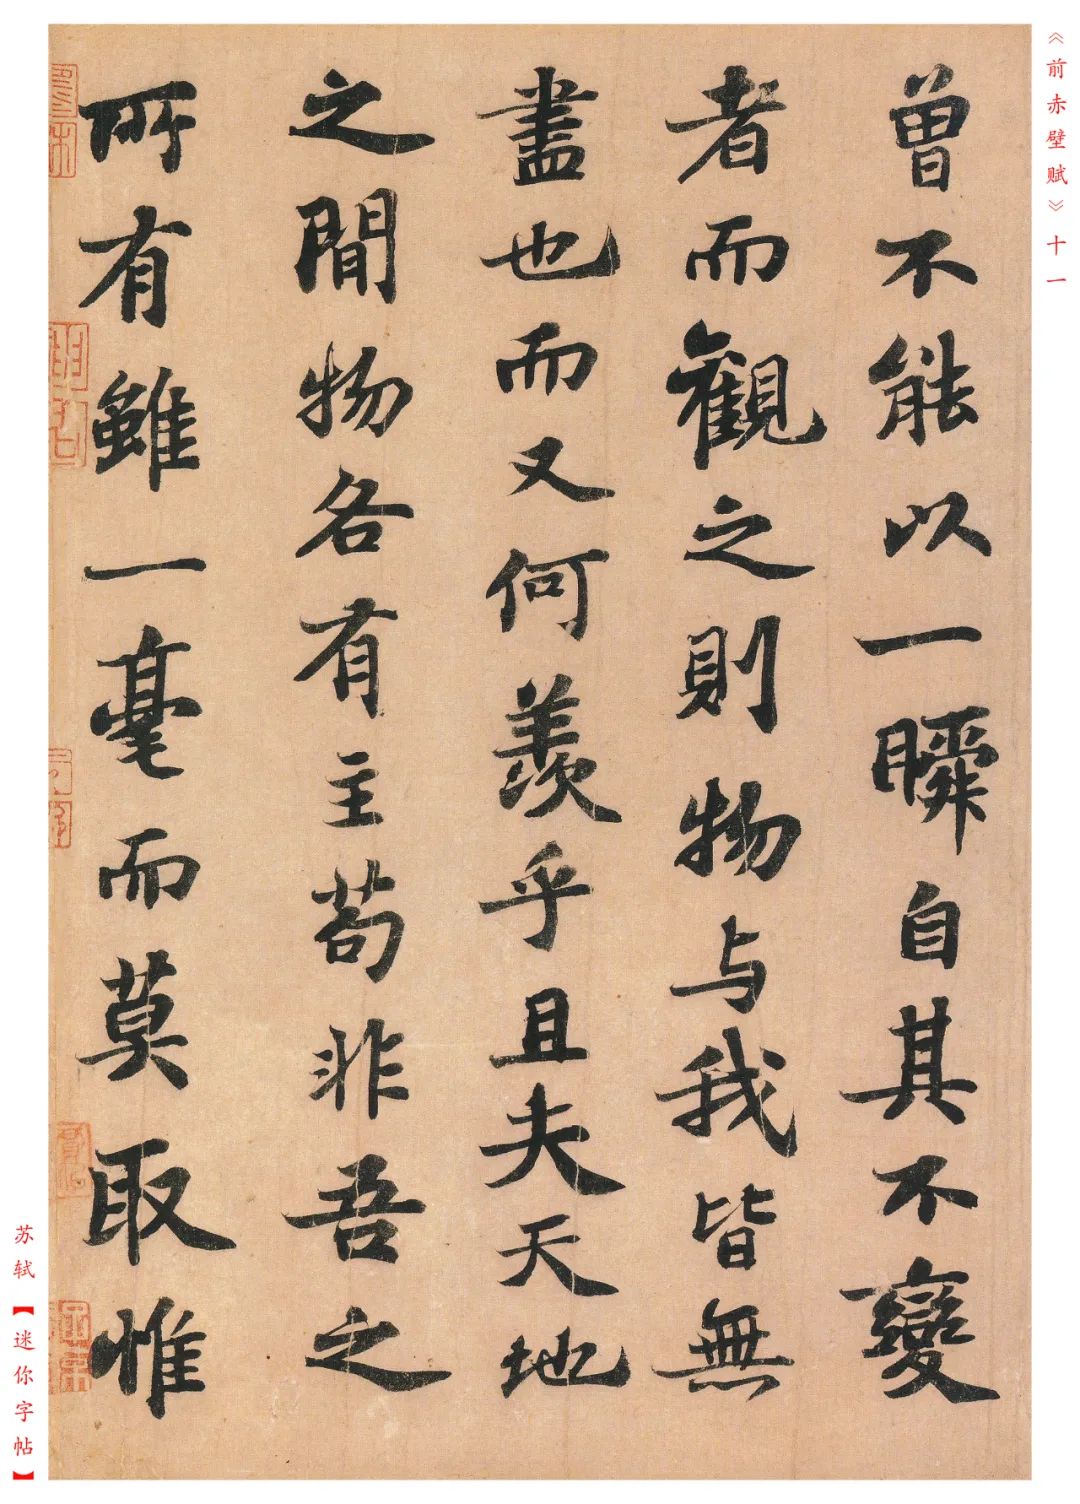 《前赤壁赋》十一
曾不能以一瞬自其不變
者而觀之則物与我皆無
盡也而又何羨乎且夫天地
之間物各有主苟非吾之
所有雖一毫而莫取惟
苏轼【迷你字帖】